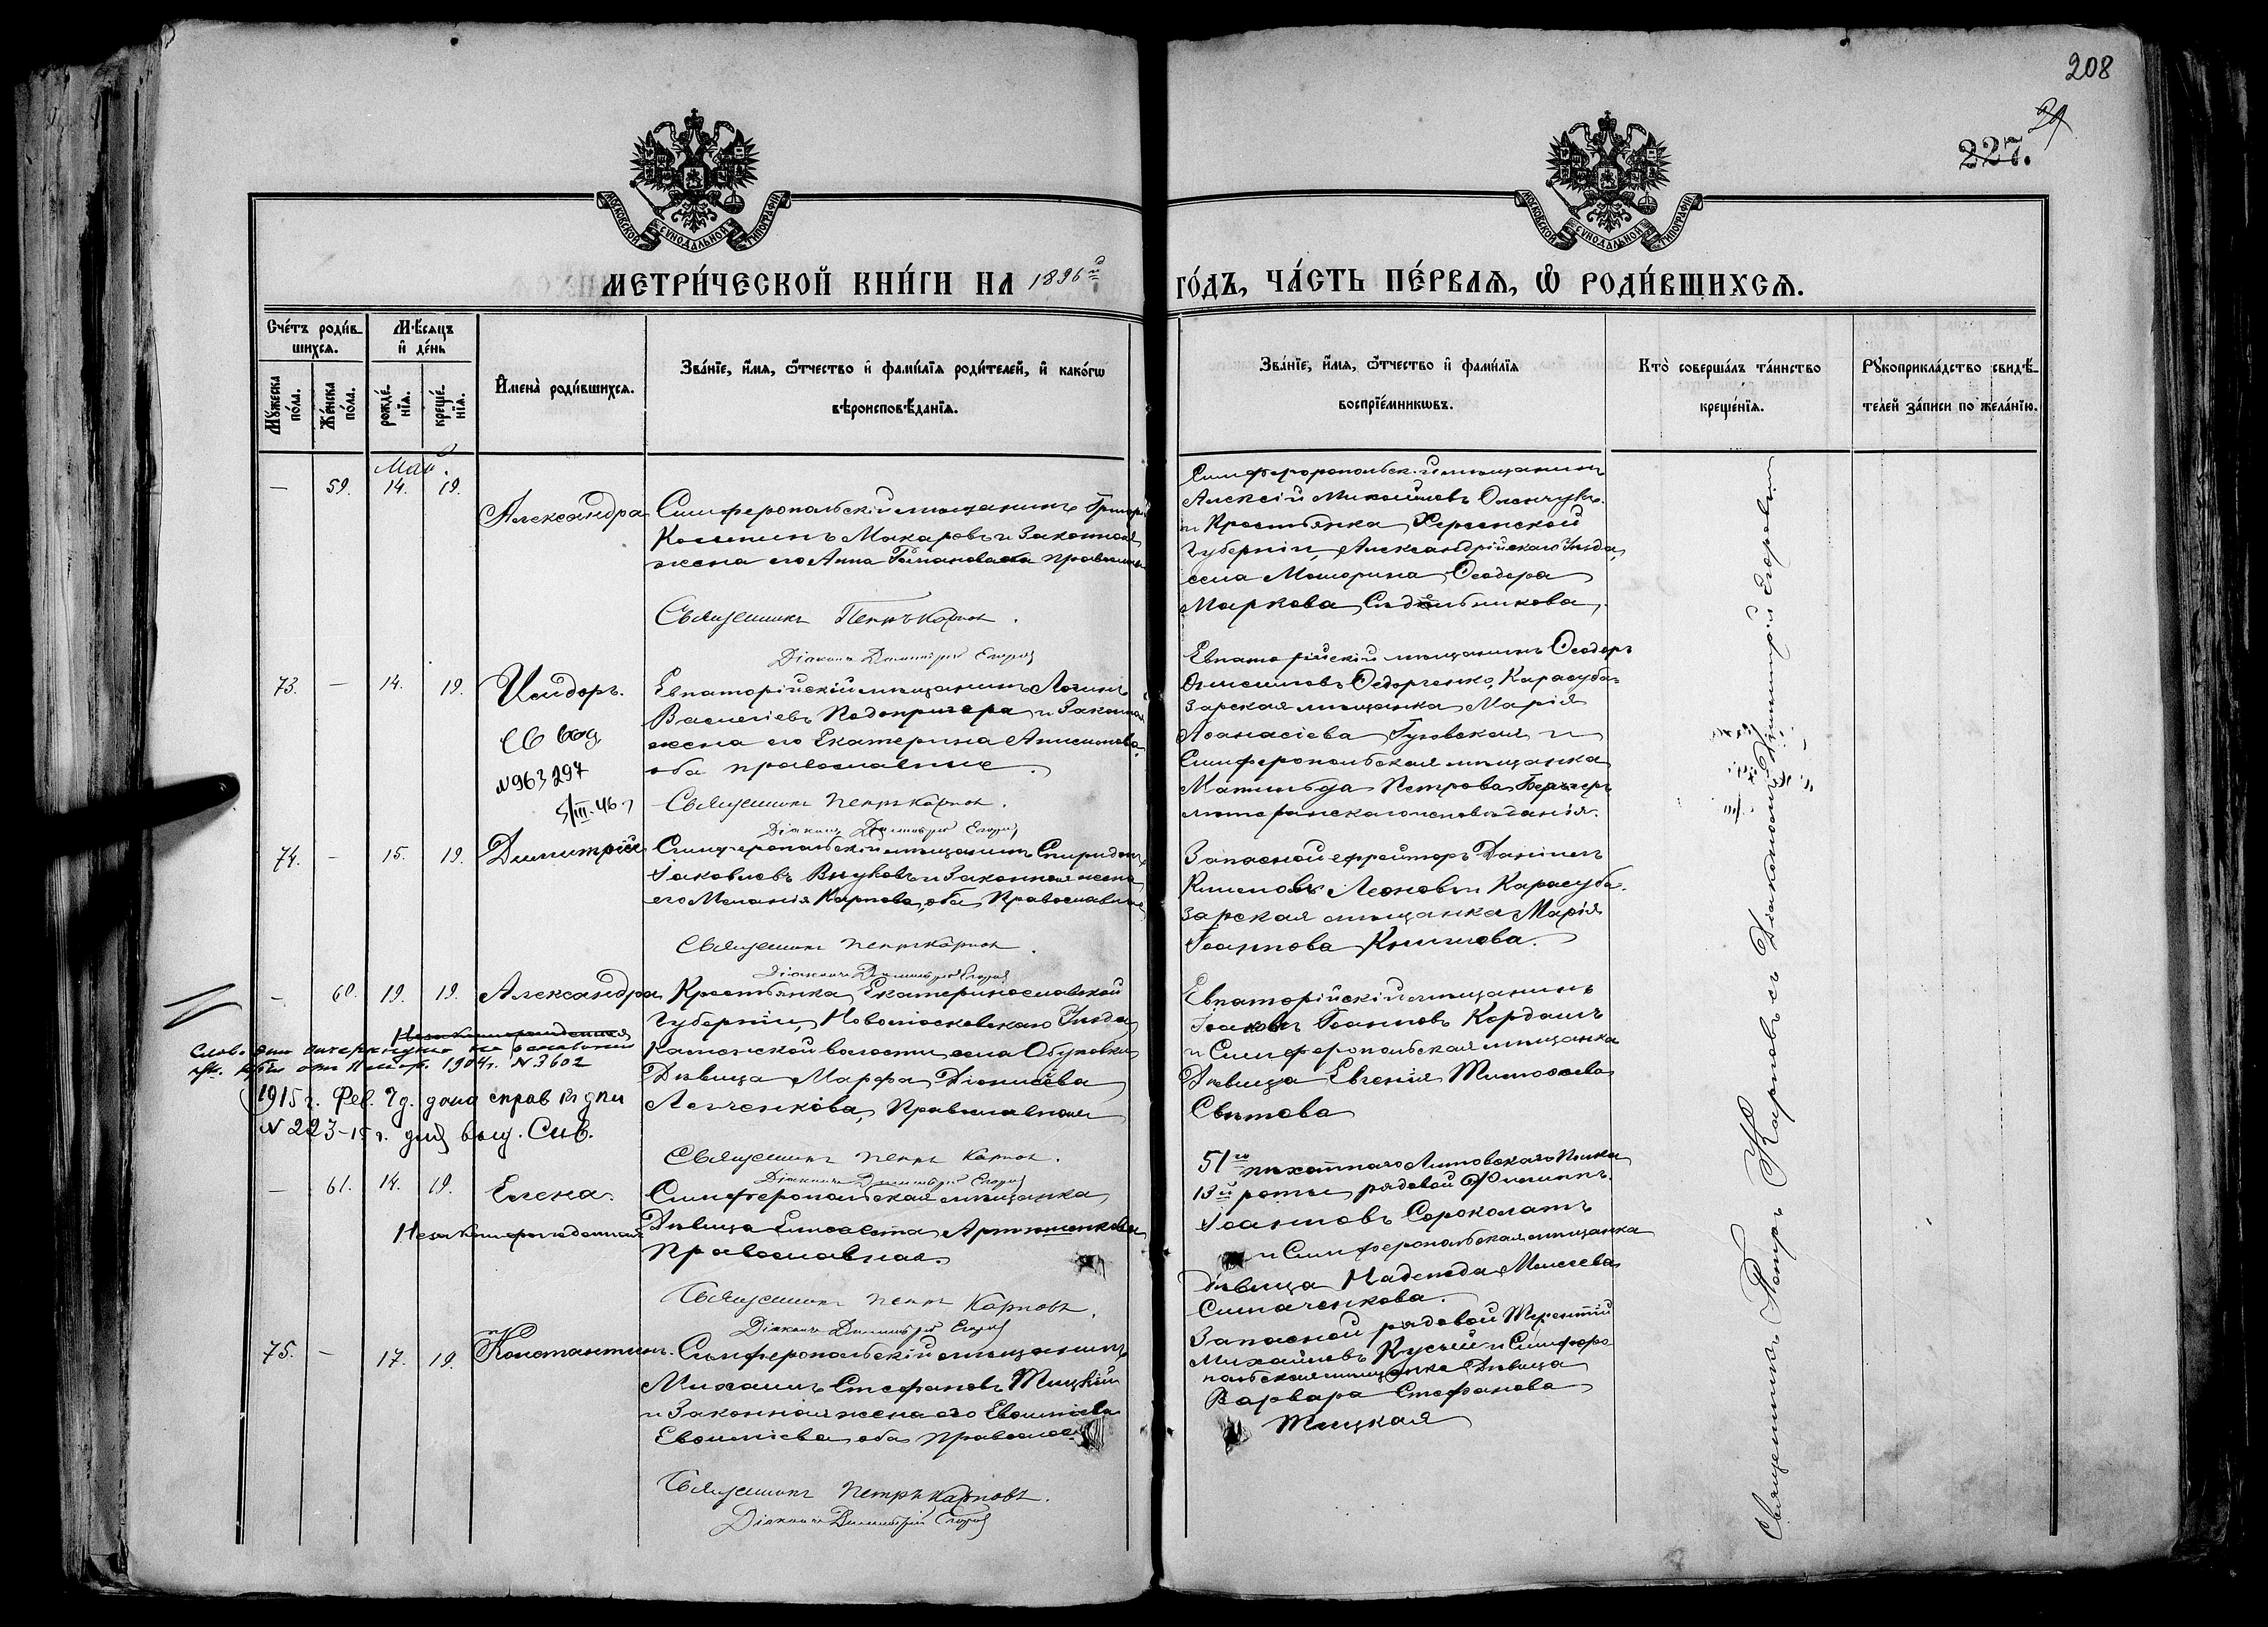 208
29
227.
МОСКОВСКОЙ СѴНОДАЛЬНОЙ ТИПОГРАФІИ
МОСКОВСКОЙ СѴНОДАЛЬНОЙ ТИПОГРАФІИ
МЕТРИ́ЧЕСКОЙ КНИ́ГИ НА 1896й
ГО́ДЪ, ЧА́СТЬ ПЕ́РВАѦ, Ѽ РОДИ́ВШИХСѦ.
Сче́тъ роди́вшихсѧ.
Мꙋ́жеска по́ла.
Же́нска по́ла.
Мѣ́сѧцъ и҆ де́нь
рожде́нїѧ.
креще́нїѧ.
И҆мена̀ роди́вшихсѧ.
Зва́нїе, и҆́мѧ, ѻ҆́тчество и҆ фами́лїѧ роди́телей, и҆ како́гѡ
вѣроисповѣ́данїѧ.
Зва́нїе, и҆́мѧ, ѻ҆́тчество и҆ фами́лїѧ
воспрїе́мникѡвъ.
Кто̀ соверша́лъ та́инство
креще́нїѧ.
Рꙋкоприкла́дство свидѣ́-
телей за́писи по жела́нїю.
Маи
— 59. 14. 19.
Александра
Симферопольскій мѣщанинъ Григорій
Макаровъ и законная
жена его Анна Романова оба православные
Священникъ Петръ Карповъ.
Діаконъ Димитрій Егоровъ
Симферопольскій мѣщанинъ
Алексій Николаевъ
и Крестьянка Херсонской
Губерніи, Александрійскаго Уѣзда,
села Моторина Ѳеодора
Маркова Сидѣльникова.
73. — 14. 19.
Исидоръ.
Св выд
№963297
5/III.46 г
Евпаторійскій мѣщанинъ Логинъ
Василіевъ Подопригора и законная
жена его Екатерина Анисимова
оба православные.
Священникъ Петръ Карповъ.
Діаконъ Димитрій Егоровъ
Евпаторійскій мѣщанинъ Ѳеодоръ
Онисимовъ Ѳедорченко, Карасуба-
зарская мѣщанка Марія
Аѳанасіева Гуновская и
Симферопольская мѣщанка
Матильда Петрова Бергеръ
лютеранскаго исповѣданія.
74. — 15. 19.
Димитрій
Симферопольскій мѣщанинъ Спиридонъ
Іаковлевъ Внуковъ и законная жена
его Меланія Карпова, оба Православные
Священникъ Петръ Карповъ.
Діаконъ Димитрій Егоровъ
Запасной ефрейторъ Даніилъ
Леоновъ и Карасуба-
зарская мѣщанка Марія
Іоаннова
— 60. 19. 19.
Александра
Незаконнорожденная
Слово это вычеркнуто на основаніи
отъ 1904г. №3602
1915 г. Фев. 7 д. дана справка для
№ 223-15 г. для выд. Сив.
Крестьянка Екатеринославской
Губерніи, Новомосковскаго Уѣзда
волости, села Обуховки
Дѣвица Марфа Діонисіева
Левченкова, Православная
Священникъ Петръ Карповъ.
Діаконъ Димитрій Егоровъ
Евпаторійскій мѣщанинъ
Іаковъ Іоанновъ Кордашъ
и Симферопольская мѣщанка
Дѣвица Евгенія Тимоѳеева
Свѣтова
— 61. 14. 19.
Елена.
Незаконнорожденная
Симферопольская мѣщанка
Дѣвица Елисавета Артюшенкова
Православная.
Священникъ Петръ Карповъ.
Діаконъ Димитрій Егоровъ
51го пѣхотнаго Литовскаго Полка
13й роты рядовой Филиппъ
Іоанновъ Сороколатъ
и Симферопольская мѣщанка
дѣвица Надежда Моисеева
Симаченкова.
75. — 17. 19.
Константинъ.
Симферопольскій мѣщанинъ
Михаилъ Стефановъ Тицкій
и Законная жена его Евѳимія
Евѳиміева, оба Православ.
Священникъ Петръ Карповъ.
Діаконъ Димитрій Егоровъ
Запасной рядовой Терентій
Михайловъ Кусый и Симферо-
польская мѣщанка Дѣвица
Варвара Стефанова
Тицкая
Священникъ Петръ Карповъ съ Діакономъ Димитрій Егоровъ